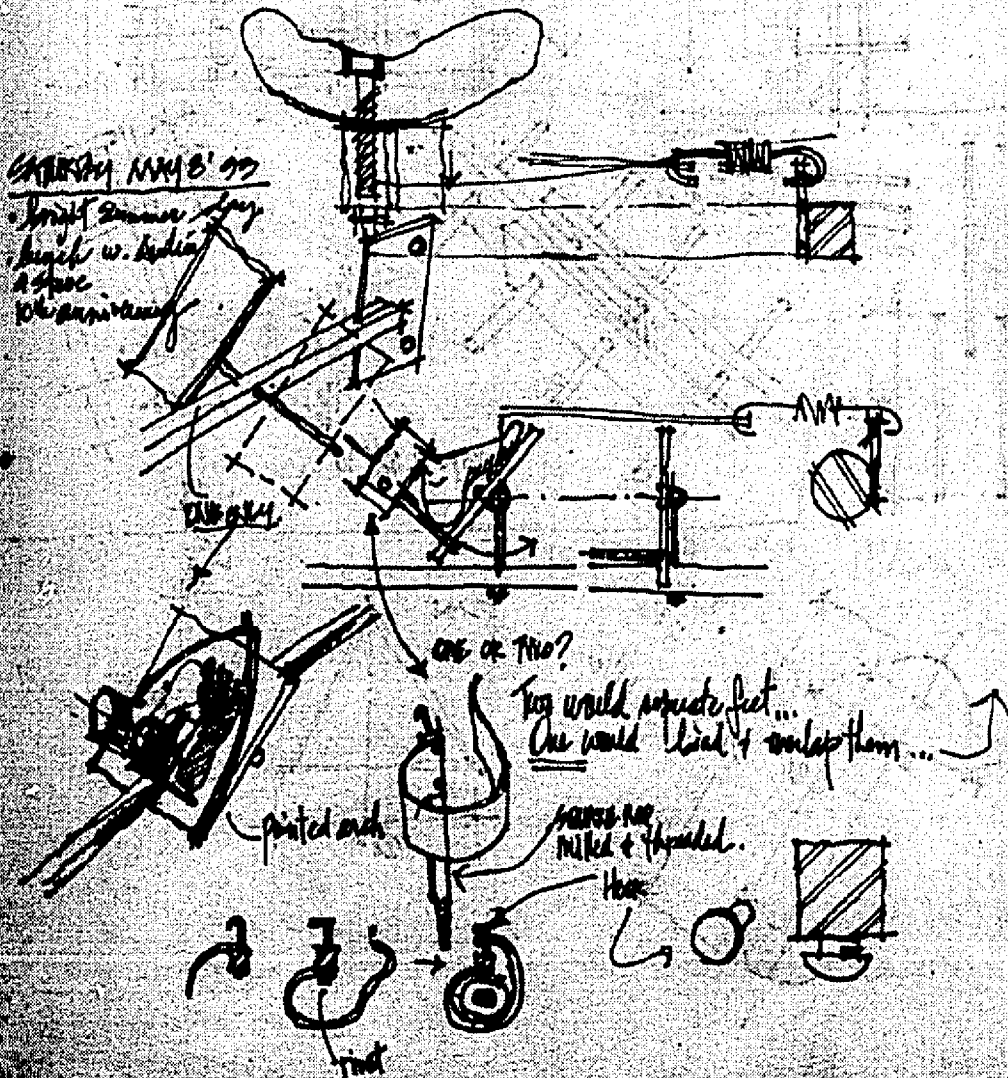 SATURDAY MAY 8'93
bright summer day
lunch w.
10th anniversary
ONE ONLY.
ONE OR TWO?
Two would separate feet...
One would bind & overlap them...
pointed arch
SQUARE ROD
milled & threaded.
Hook
rivet